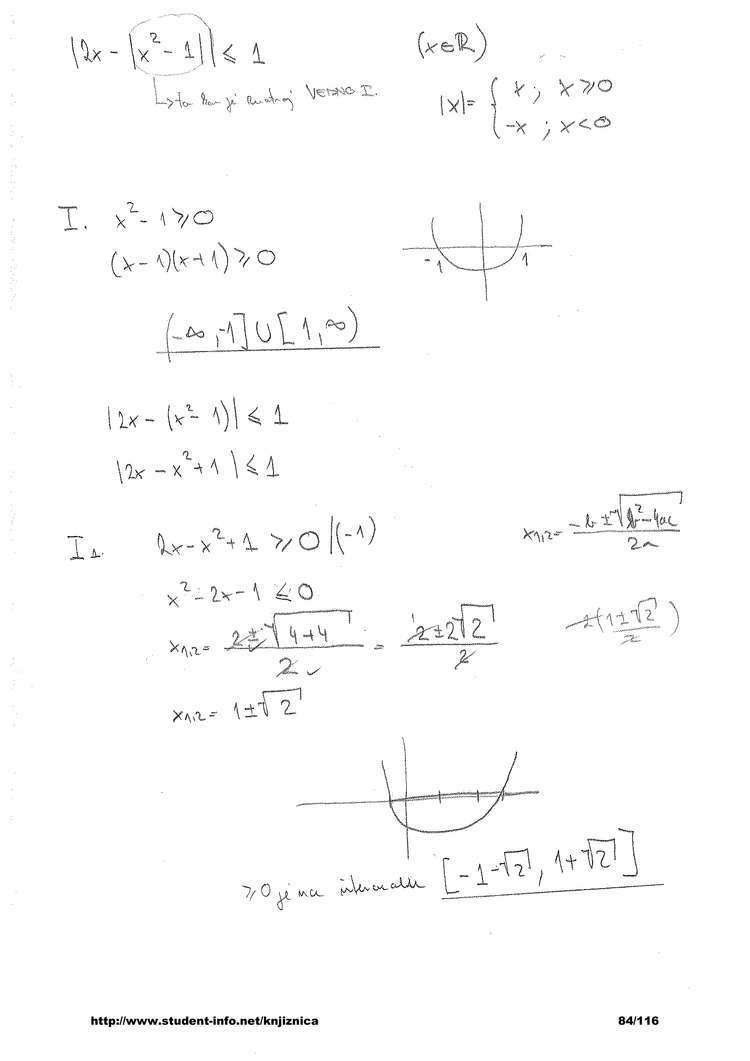 |2x - |x² - 1|| ⩽ 1 (x∈ℝ)
↳ to je VEDNO I.
|x| = { x ; x ⩾ 0
-x ; x < 0
I. x² - 1 ⩾ 0
(x - 1)(x + 1) ⩾ 0
-1 1
(-∞, -1] ∪ [1, ∞)
|2x - (x² - 1)| ⩽ 1
|2x - x² + 1| ⩽ 1
I 1. 2x - x² + 1 ⩾ 0 |(-1)
x₁,₂ = (-b ± √(b² - 4ac)) / 2a
x² - 2x - 1 ⩽ 0
x₁,₂ = (2 ± √(4+4)) / 2 = (2 ± 2√2) / 2
2(1 ± √2) / 2
x₁,₂ = 1 ± √2
⩾ 0 je na intervalu [-1-√2, 1+√2]
http://www.student-info.net/knjiznica 84/116